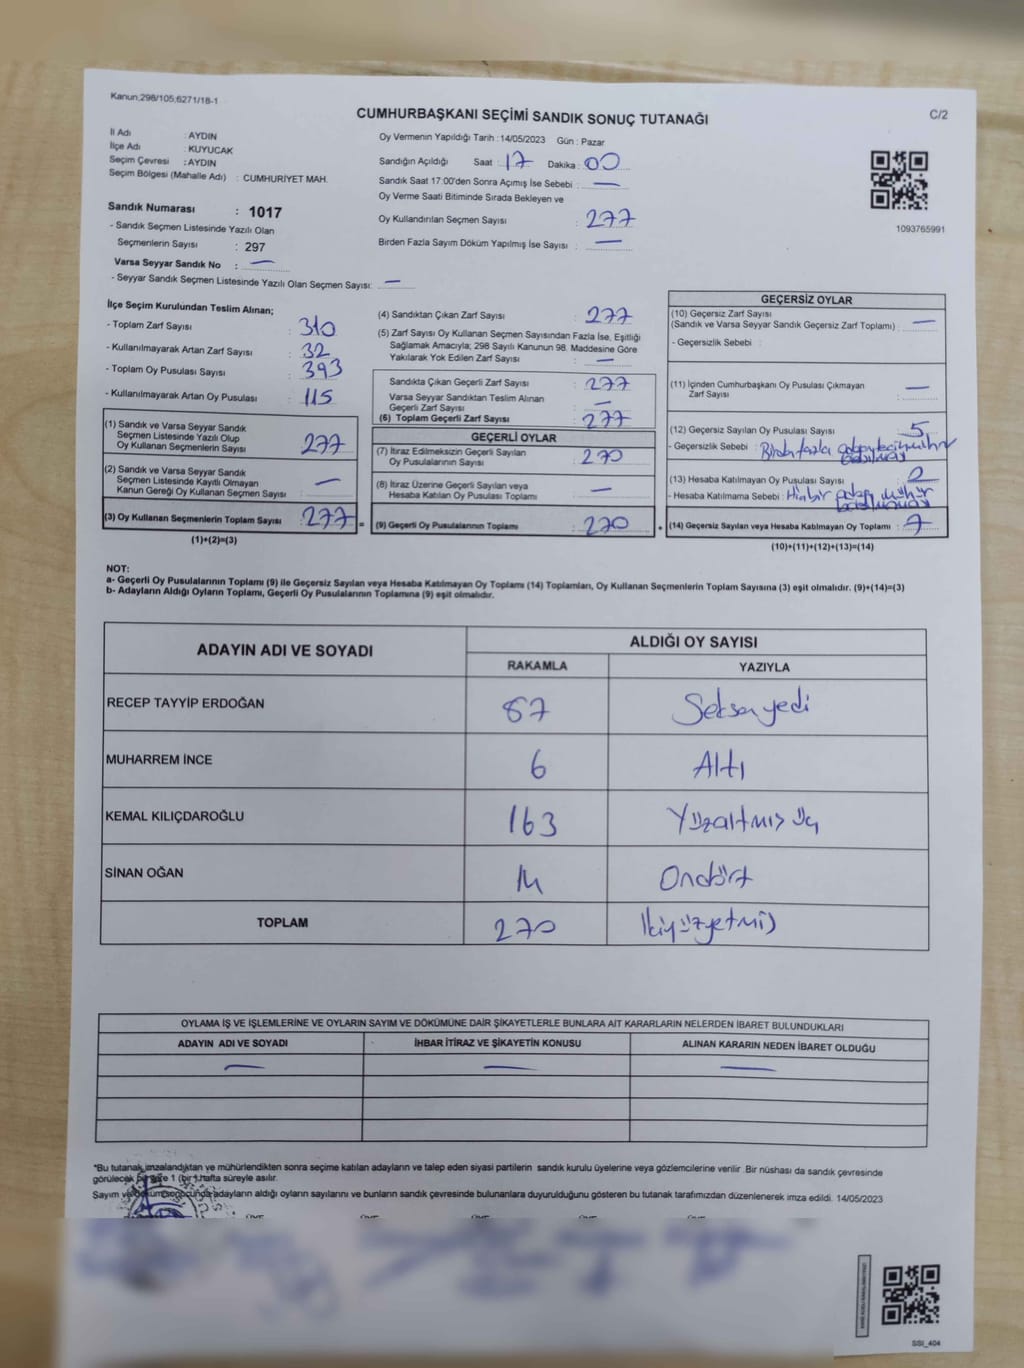 Kanun,298/105,6271/18-1
C/2
CUMHURBAŞKANI SEÇİMİ SANDIK SONUÇ TUTANAĞI
İl Adı : AYDIN
İlçe Adı : KUYUCAK
Seçim Çevresi : AYDIN
Seçim Bölgesi (Mahalle Adı) : CUMHURİYET MAH.
Sandık Numarası : 1017
- Sandık Seçmen Listesinde Yazılı Olan
Seçmenlerin Sayısı : 297
Varsa Seyyar Sandık No : —
- Seyyar Sandık Seçmen Listesinde Yazılı Olan Seçmen Sayısı: —
Oy Vermenin Yapıldığı Tarih : 14/05/2023 Gün : Pazar
Sandığın Açıldığı Saat : 17 Dakika : 00
Sandık Saat 17:00'den Sonra Açımış İse Sebebi : —
Oy Verme Saati Bitiminde Sırada Bekleyen ve
Oy Kullandırılan Seçmen Sayısı : 277
Birden Fazla Sayım Döküm Yapılmış İse Sayısı : —
1093765991
İlçe Seçim Kurulundan Teslim Alınan;
- Toplam Zarf Sayısı : 310
- Kullanılmayarak Artan Zarf Sayısı : 32
- Toplam Oy Pusulası Sayısı : 393
- Kullanılmayarak Artan Oy Pusulası : 115
(1) Sandık ve Varsa Seyyar Sandık
Seçmen Listesinde Yazılı Olup
Oy Kullanan Seçmenlerin Sayısı : 277
(2) Sandık ve Varsa Seyyar Sandık
Seçmen Listesinde Kayıtlı Olmayan
Kanun Gereği Oy Kullanan Seçmen Sayısı : —
(3) Oy Kullanan Seçmenlerin Toplam Sayısı : 277 =
(1)+(2)=(3)
(4) Sandıktan Çıkan Zarf Sayısı : 277
(5) Zarf Sayısı Oy Kullanan Seçmen Sayısından Fazla İse, Eşitliği
Sağlamak Amacıyla; 298 Sayılı Kanunun 98. Maddesine Göre
Yakılarak Yok Edilen Zarf Sayısı : —
Sandıkta Çıkan Geçerli Zarf Sayısı : 277
Varsa Seyyar Sandıktan Teslim Alınan
Geçerli Zarf Sayısı : —
(6) Toplam Geçerli Zarf Sayısı : 277
GEÇERLİ OYLAR
(7) İtiraz Edilmeksizin Geçerli Sayılan
Oy Pusulalarının Sayısı : 270
(8) İtiraz Üzerine Geçerli Sayılan veya
Hesaba Katılan Oy Pusulası Toplamı : —
(9) Geçerli Oy Pusulalarının Toplamı : 270 +
GEÇERSİZ OYLAR
(10) Geçersiz Zarf Sayısı
(Sandık ve Varsa Seyyar Sandık Geçersiz Zarf Toplamı) : —
- Geçersizlik Sebebi :
(11) İçinden Cumhurbaşkanı Oy Pusulası Çıkmayan
Zarf Sayısı : —
(12) Geçersiz Sayılan Oy Pusulası Sayısı : 5
- Geçersizlik Sebebi : Birden fazla adaya
(13) Hesaba Katılmayan Oy Pusulası Sayısı : 2
- Hesaba Katılmama Sebebi : Hiçbir aday mühür
(14) Geçersiz Sayılan veya Hesaba Katılmayan Oy Toplamı : 7
(10)+(11)+(12)+(13)=(14)
NOT:
a- Geçerli Oy Pusulalarının Toplamı (9) ile Geçersiz Sayılan veya Hesaba Katılmayan Oy Toplamı (14) Toplamları, Oy Kullanan Seçmenlerin Toplam Sayısına (3) eşit olmalıdır. (9)+(14)=(3)
b- Adayların Aldığı Oyların Toplamı, Geçerli Oy Pusulalarının Toplamına (9) eşit olmalıdır.
ADAYIN ADI VE SOYADI ALDIĞI OY SAYISI
RAKAMLA YAZIYLA
RECEP TAYYİP ERDOĞAN 87 Seksenyedi
MUHARREM İNCE 6 Altı
KEMAL KILIÇDAROĞLU 163 Yüzaltmış üç
SİNAN OĞAN 14 Ondört
TOPLAM 270 İkiyüzyetmiş
OYLAMA İŞ VE İŞLEMLERİNE VE OYLARIN SAYIM VE DÖKÜMÜNE DAİR ŞİKAYETLERLE BUNLARA AİT KARARLARIN NELERDEN İBARET BULUNDUKLARI
ADAYIN ADI VE SOYADI İHBAR İTİRAZ VE ŞİKAYETİN KONUSU ALINAN KARARIN NEDEN İBARET OLDUĞU
— — —
*Bu tutanak imzalandıktan ve mühürlendikten sonra seçime katılan adayların ve talep eden siyasi partilerin sandık kurulu üyelerine veya gözlemcilerine verilir. Bir nüshası da sandık çevresinde
görülecek bir yere 1 (bir) hafta süreyle asılır.
Sayım ve döküm sonucunda adayların aldığı oyların sayılarını ve bunların sandık çevresinde bulunanlara duyurulduğunu gösteren bu tutanak tarafımızdan düzenlenerek imza edildi. 14/05/2023
SSI_404